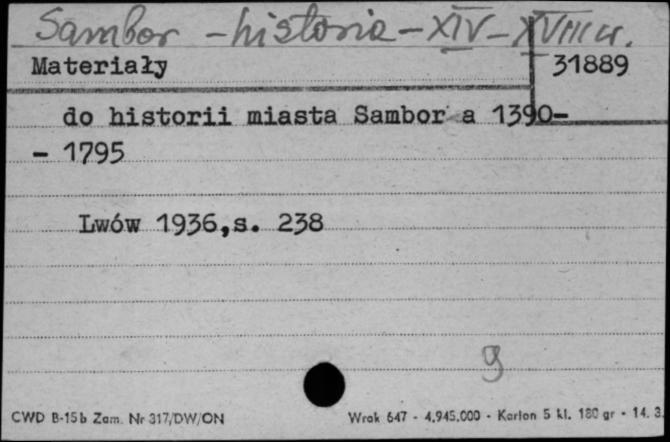 Sambor - historia - XIV - XVIII w.
Materiały 31889
do historii miasta Sambor a 1390-
- 1795
Lwów 1936,s. 238
g
CWD B-15b Zam. Nr 317/DW/ON Wrak 647 - 4.945.000 - Karton 5 kl. 180 gr - 14. 3.